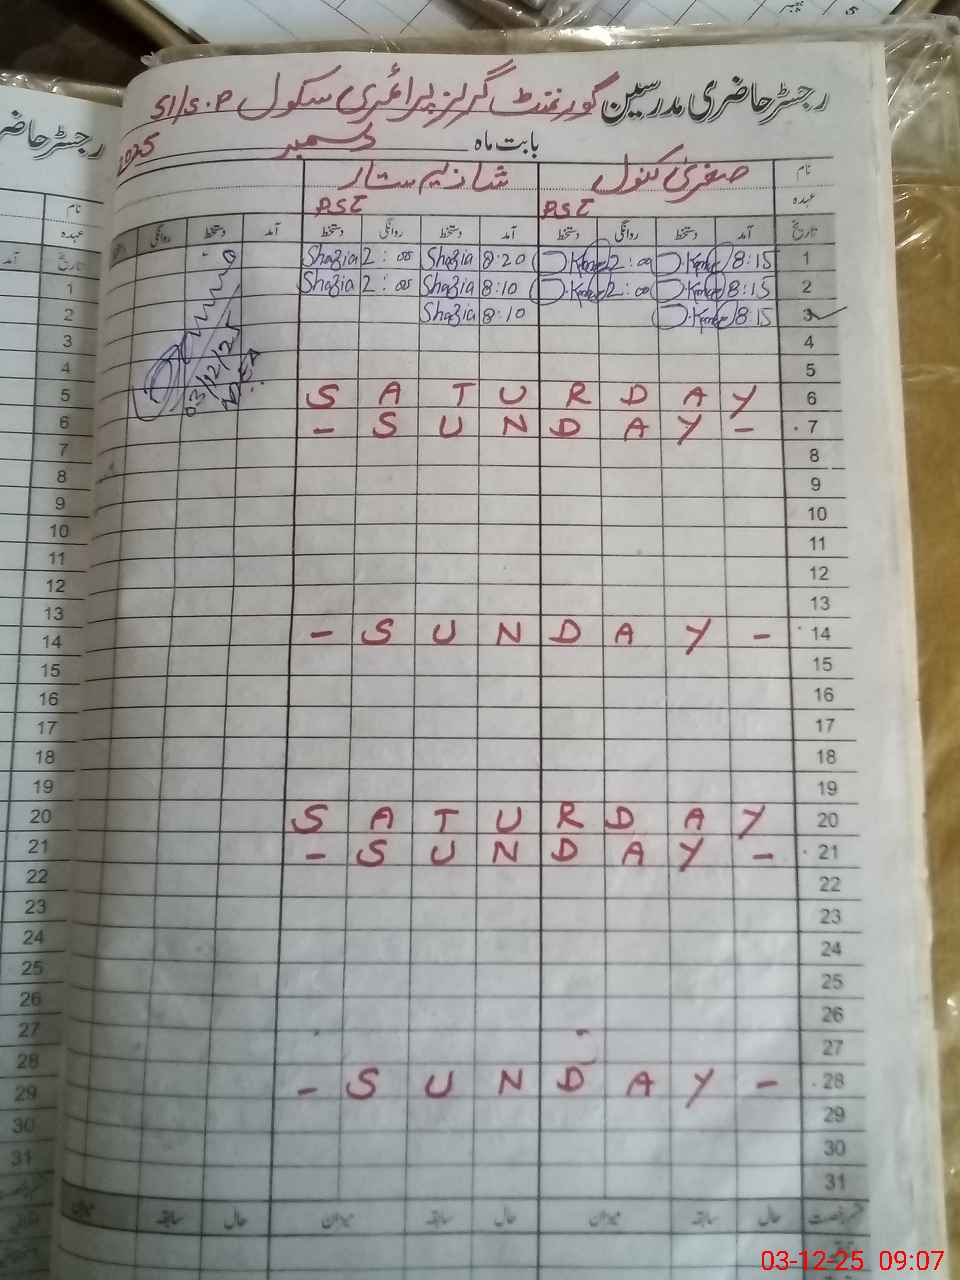 رجسٹر حاضری مدرسین گورنمنٹ گرلز پرائمری سکول 51/S.P
بابت ماہ دسمبر 2025
نام صغریٰ کنول شازیہ ستار
عہدہ PST PST
تاریخ آمد دستخط روانگی دستخط آمد دستخط روانگی دستخط آمد دستخط روانگی
1 8:15 2:00 8:20 Shazia 2:00 Shazia
2 8:15 2:00 8:10 Shazia 2:00 Shazia
3 8:15 8:10 Shazia
4
5
6 SATURDAY
7 - SUNDAY -
8
9
10
11
12
13
14 - SUNDAY -
15
16
17
18
19
20 SATURDAY
21 - SUNDAY -
22
23
24
25
26
27
28 - SUNDAY -
29
30
31
حال سابقہ میزان حال سابقہ میزان حال سابقہ میزان
03/12/25
رجسٹر حاضری
نام
عہدہ
تاریخ آمد
1
2
3
4
5
6
7
8
9
10
11
12
13
14
15
16
17
18
19
20
21
22
23
24
25
26
27
28
29
30
31
03-12-25 09:07